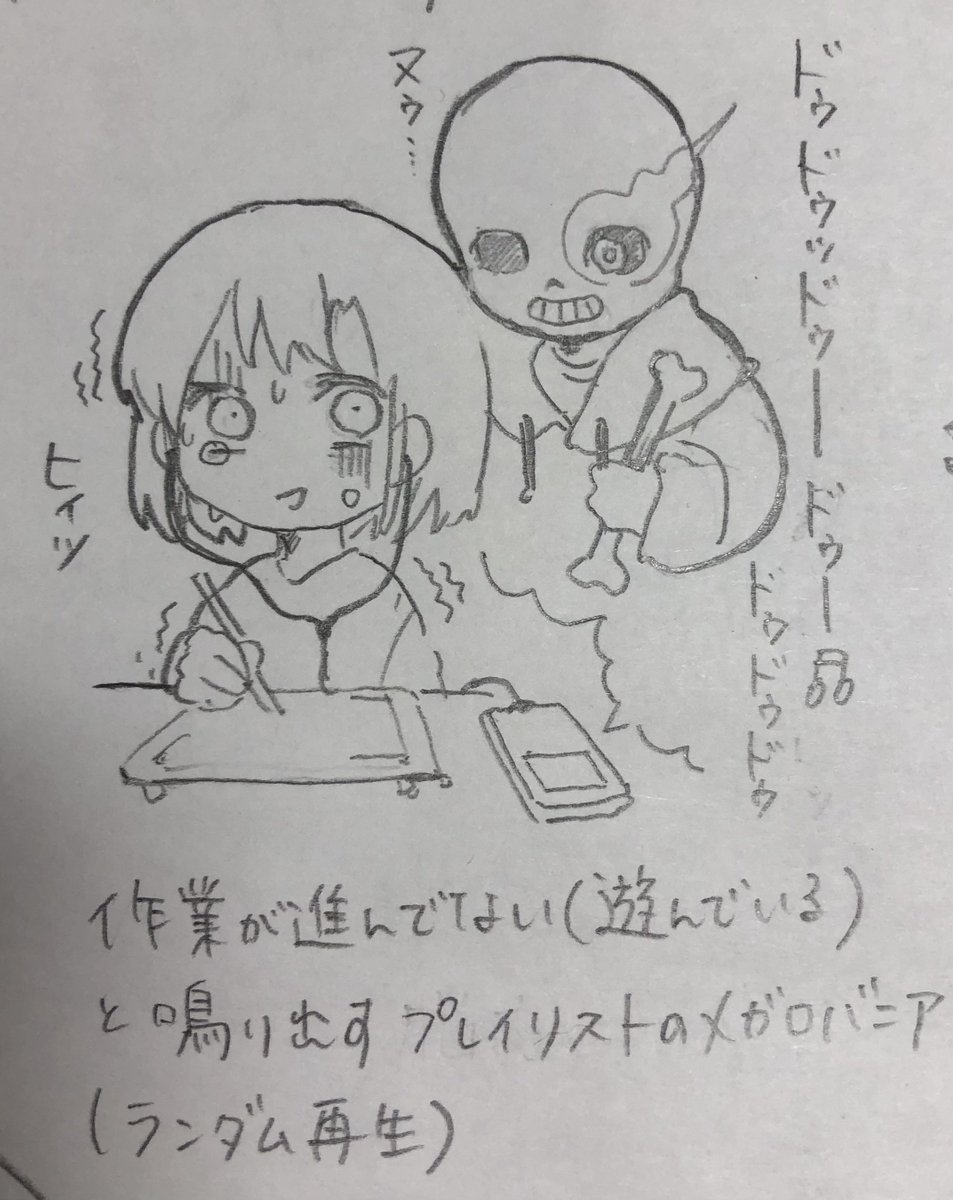 ドゥドゥッドゥーードゥー♫
ドゥドゥドゥ
ヌゥ…
ヒィッ
作業が進んでない(遊んでいる)
と鳴り出すプレイリストのメガロバニア
(ランダム再生)